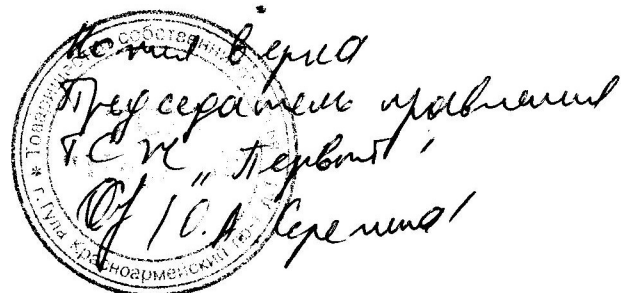 Копия верна
Председатель правления
ТСЖ „Первый"
/О.А. /
Товарищество собственни
* г. Тула Красноармейский